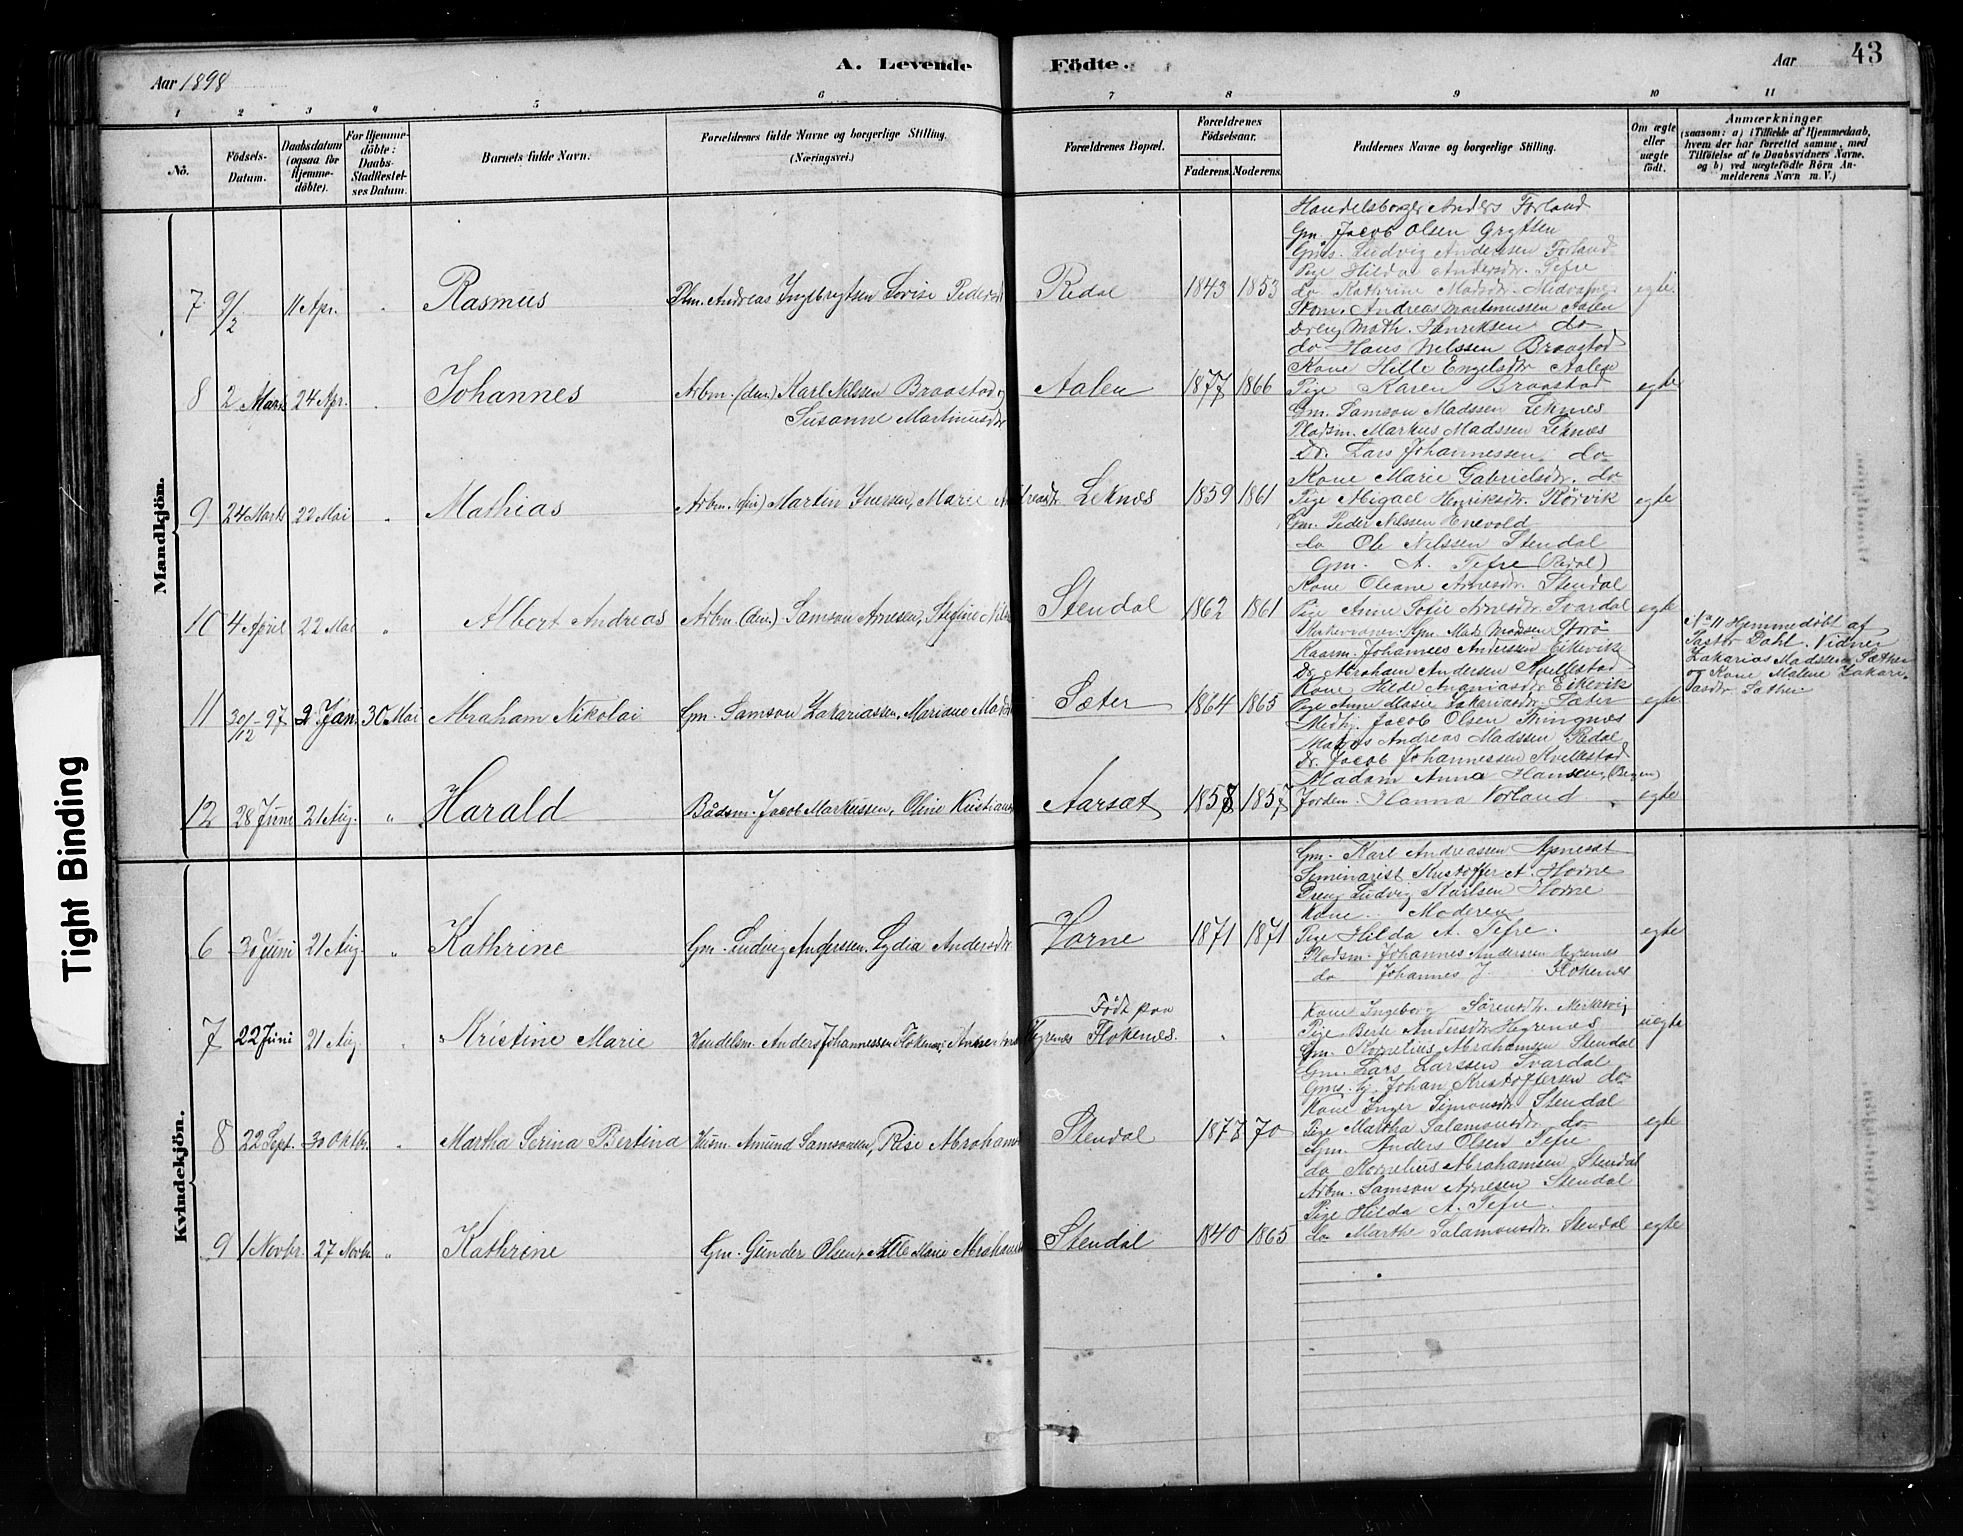 Aar 1898
A. Levende
Födte.
Aar
43
1 2 3 4 5 6 7 8 9 10 11
No.
Födsels-
Datum.
Daabsdatum
(ogsaa for
Hjemme-
döbte).
For Hjemme-
döbte:
Daabs-
Stadfæstel-
ses Datum.
Barnets fulde Navn.
Forældrenes fulde Navne og borgerlige Stilling.
(Næringsvei.)
Forældrenes Bopæl.
Forældrenes
Födselsaar.
Faderens. Moderens.
Faddernes Navne og borgerlige Stilling.
Om ægte
eller
uægte
födt.
Anmærkninger
(saasom: a) i Tilfælde af Hjemmedaab,
hvem der har forrettet samme, med
Tilföielse af to Daabsvidners Navne,
og b) ved uægtefödte Börn An-
melderens Navn m. V.)
Mandkjön.
7 9/2 11 Apr. Rasmus
Andreas Ingebrigtsen Lovise
Redal 1843 1853
Handelsborger Anders Forland
Gm. Jacob Olsen Grytten
Gms. Ludvig Andersen Forland
Pige Hilda Andersdr. Tefre
do Kathrine Madsdr.
egte
8 2 Marts 24 Apr. Johannes
Arbm. (den) Karl Nilsen Braastad
Susanne Martinusdr
Aalen 1877 1866
Skom. Andreas Martinussen Aalen
Dreng Math. Henriksen do
do Hans Nilssen Braastad
Kone Hille Engelsdr Aalen
Pige Karen Braastad
egte
9 24 Marts 22 Mai " Mathias
Martin Marie
Leknes 1859 1861
Gm. Samson Madssen Leknes
Pladsm. Markus Madssen Leknes
Dr. Lars Johannessen do
Kone Marie Gabrielsdr. do
Pige Abigael Henriksdr.
egte
10 4 April 22 Mai " Albert Andreas
Arbm. (den) Samson Arnesen,
Stendal 1862 1861
Gm. Peder Nilssen Enevold
do Ole Nilssen Stendal
Gm. A. Tefre (Redal)
Kone Oleane Arnesdr. Stendal
Pige Anne Sofie Arnesdr. Svardal
egte
11 30/12-97 2 Jan. 30 Mai Abraham Nikolai
Gm. Samson Zakariassen, Mariane
Sæter 1864 1865
Kirkeværger. Gm. Mads Madssen Storø
Kaarm. Johannes Anderssen Eikevik
Dr. Abraham Andersen
Kone Hilde Ananiasdr Eikevik
Pige Anne Marie Zakariasdr. Sæter
egte
No 11 Hjemmedøbt af
Pastor Dahl. Vidner
Zakarias Madssen Sæther
og Kone Malene Zakari-
asdr. Sæther
12 28 Juni 21 Aug. " Harald
Jacob Markussen, Oline
Aarsæt 1858 1857
Medhj. Jacob Olsen Thingnes
Andreas Madssen Redal
Dr. Jacob Johannessen Kvellestad
Madam Anna Hansen, (Bergen)
Jordm. Hanna Norland
egte
Kvindekjön.
6 30 Juni 21 Aug. " Kathrine
Gm. Ludvig Andersen. Lydia Andersdr.
Horne 1871 1871
Gm. Karl Andreassen
Seminarist Kristoffer A. Horne
Dreng Ludvig Karlsen Horne
Kone Moderen
Pige Hilda A. Tefre.
egte
7 22 Juni 21 Aug. " Kristine Marie
Handelsm. Anders Johannessen Flokenes,
Født paa
Flokenes.
Pladsm. Johannes Andersen Hegrenes
do Johannes J. Flokenes
Kone Ingeborg Sørensdr.
Pige Berte Andersdr Hegrenes
uegte
8 22 Sept. 30 Oktbr. " Martha Serina Bertina
Husm. Amund Samsonsen,
Stendal 1877 70
Gm. Kornelius Abrahamsen Stendal
Gm. Lars Larssen Svardal
Johan Kristoffersen do
Kone Inger Simonsdr Stendal
Pige Martha Salamonsdr. do
egte
9 1 Novbr. 27 Novbr " Kathrine
Gm. Gunder Olsen,
Stendal 1840 1865
Gm. Anders Olsen Tefre
do Kornelius Abrahamsen Stendal
Arbm. Samson Arnesen Stendal
Pige Hilda A. Tefre.
do Marthe Salamonsdr. Stendal
egte
Tight Binding